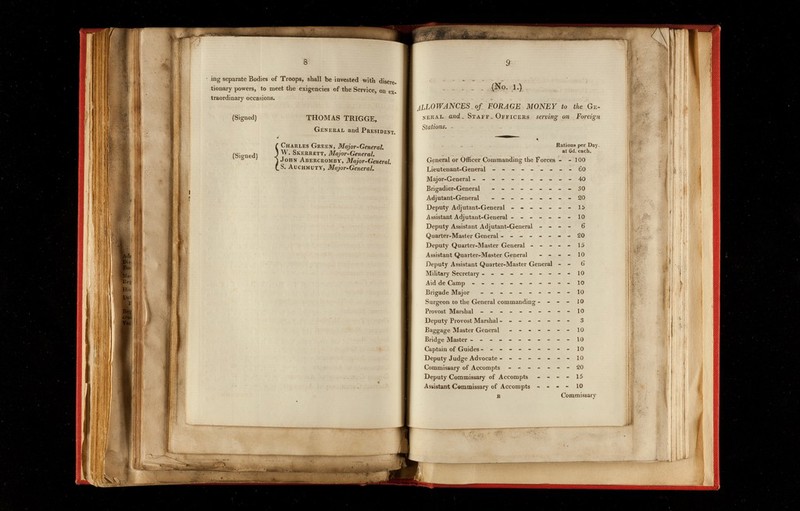 8
ing separate Bodies of Troops, shall be invested with discre-
tionary powers, to meet the exigencies of the Service, on ex-
traordinary occasions.
(Signed) THOMAS TRIGGE,
GENERAL and PRESIDENT.
(Signed)
CHARLES GREEN, Major-General.
W. SKERRETT, Major-General.
JOHN ABERCROMBY, Major-General.
S. AUCHMUTY, Major-General.
9
(No. 1.)
ALLOWANCES of FORAGE MONEY to the GE-
NERAL and STAFF OFFICERS serving on Foreign
Stations.
Rations per Day
at 6d. each.
General or Officer Commanding the Forces - - 100
Lieutenant-General - - - - - - - - 60
Major-General - - - - - - - - - - 40
Brigadier-General - - - - - - - - 30
Adjutant-General - - - - - - - - 20
Deputy Adjutant-General - - - - - - - 15
Assistant Adjutant-General - - - - - - - 10
Deputy Assistant Adjutant-General - - - - 6
Quarter-Master General - - - - - - - - 20
Deputy Quarter-Master General - - - - - 15
Assistant Quarter-Master General - - - - 10
Deputy Assistant Quarter-Master General - - 6
Military Secretary - - - - - - - - - - 10
Aid de Camp - - - - - - - - - - - 10
Brigade Major - - - - - - - - - - 10
Surgeon to the General commanding - - - - 10
Provost Marshal - - - - - - - - - - 10
Deputy Provost Marshal - - - - - - - - 5
Baggage Master General - - - - - - - 10
Bridge Master - - - - - - - - - - - 10
Captain of Guides - - - - - - - - - - 10
Deputy Judge Advocate - - - - - - - - 10
Commissary of Accompts - - - - - - - 20
Deputy Commissary of Accompts - - - - - 15
Assistant Commissary of Accompts - - - - 10
B Commissary